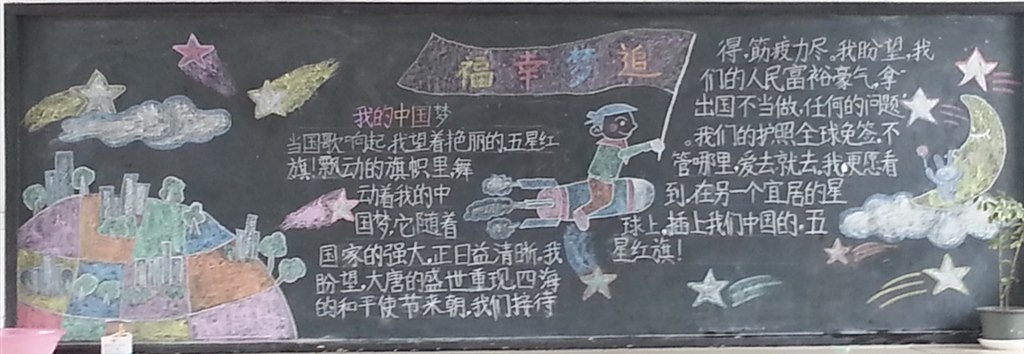 福幸梦追
我的中国梦
当国歌响起,我望着艳丽的五星红
旗!飘动的旗帜里,舞
动着我的中
国梦,它随着
国家的强大,正日益清晰,我
盼望,大唐的盛世重现,四海
的和平使节来朝,我们接待
得,筋疲力尽。我盼望,我
们的人民富裕豪气,拿
出国不当做,任何的问题
。我们的护照全球免签,不
管哪里,爱去就去,我更愿看
到,在另一个宜居的星
球上,插上我们中国的,五
星红旗!